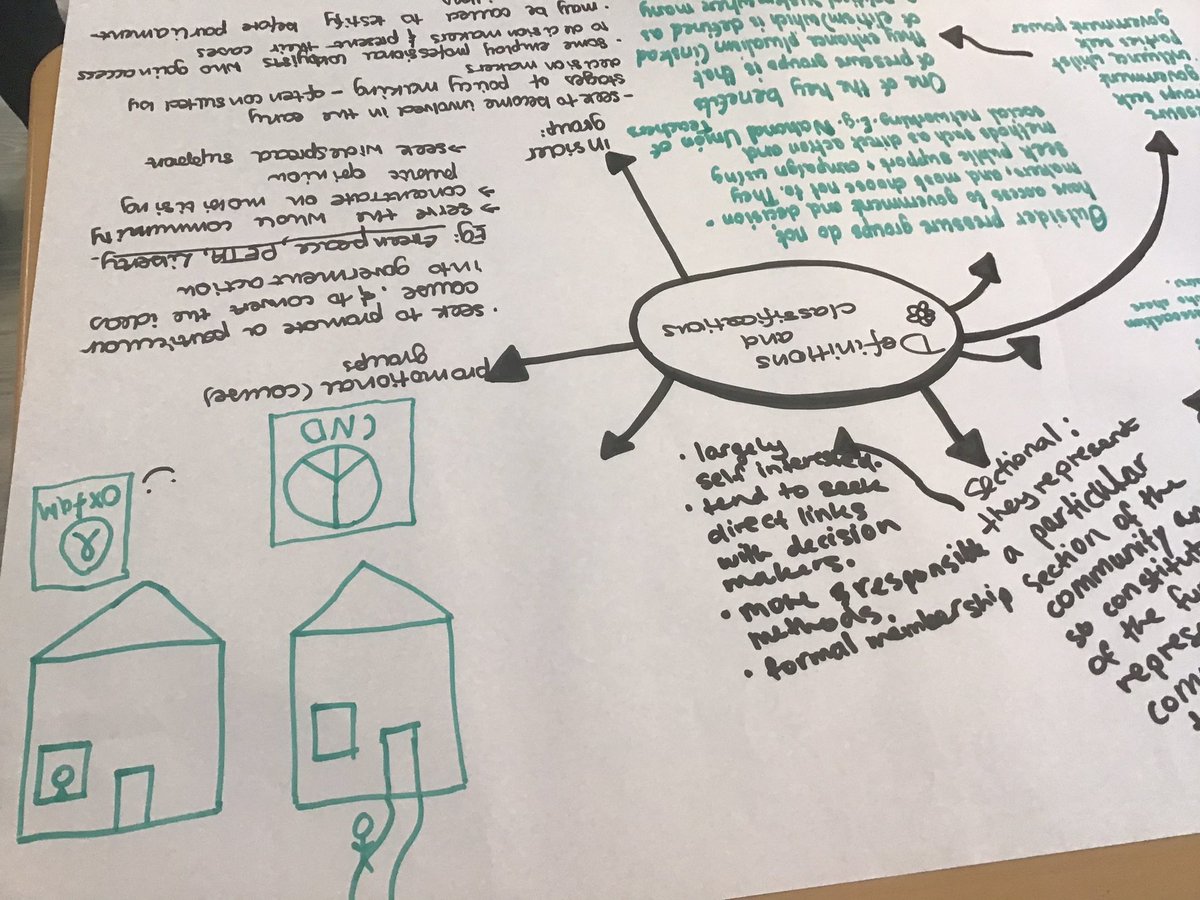 Definitions
and
classifications
promotional (cause)
groups
• seek to promote a particular
cause & to convert the ideas
into government action
Eg: Greenpeace, PETA, Liberty.
→ serve the whole community
→ concentrate on mobilising
public opinion
→ seek widespread support
insider
group:
- seek to become involved in the early
stages of policy making - often consulted by
decision makers
• some employ professional lobbyists who gain access
to decision makers & present their cases
• may be called to testify before parliament
Outsider pressure groups do not
have access to government and decision
makers, and most choose not to. They
seek public support & campaign using
methods such as direct action and
social networking. E.g. National Union of Teachers
One of the key benefits
of pressure groups is that
they enhance pluralism (linked
of elitism) which is defined as
where many
groups seek
government
whilst
parties seek
government power
Sectional:
they represent
a particular
section of the
community and
so
of the
• largely
self interested.
• tend to seek
direct links
with decision
makers.
• more responsible
methods.
• formal membership
CND
Oxfam